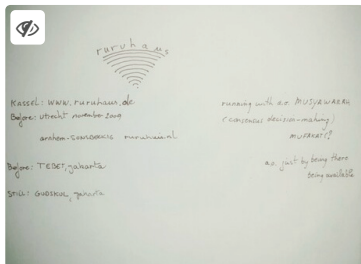 ruruhaus
KASSEL: WWW.ruruhaus.de
Before: utrecht november 2009
arnhem - SONSBEEK16 ruruhuis.nl
Before: TEBET, jakarta
STILL: GUDSKUL, jakarta
running with a.o. MUSYAWARAH
(consensus decision-making)
MUFAKAT?
a.o. just by being there
being available